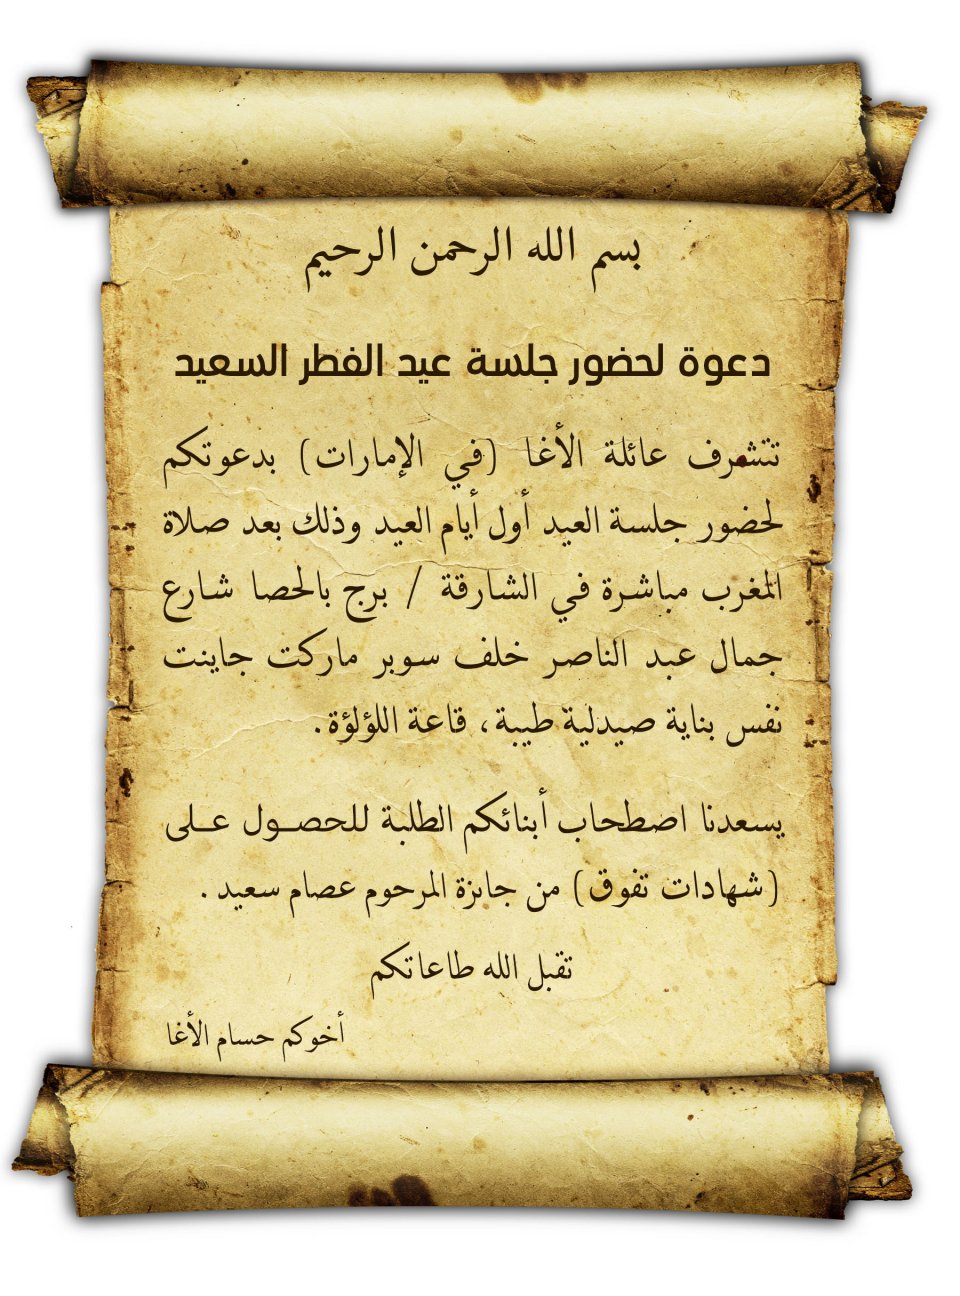 بسم الله الرحمن الرحيم
دعوة لحضور جلسة عيد الفطر السعيد
تتشرف عائلة الأغا (في الإمارات) بدعوتكم
لحضور جلسة العيد أول أيام العيد وذلك بعد صلاة
المغرب مباشرة في الشارقة / برج بالحصا شارع
جمال عبد الناصر خلف سوبر ماركت جاينت
نفس بناية صيدلية طيبة، قاعة اللؤلؤة.
يسعدنا اصطحاب أبنائكم الطلبة للحصول على
(شهادات تفوق) من جائزة المرحوم عصام سعيد .
تقبل الله طاعاتكم
أخوكم حسام الأغا